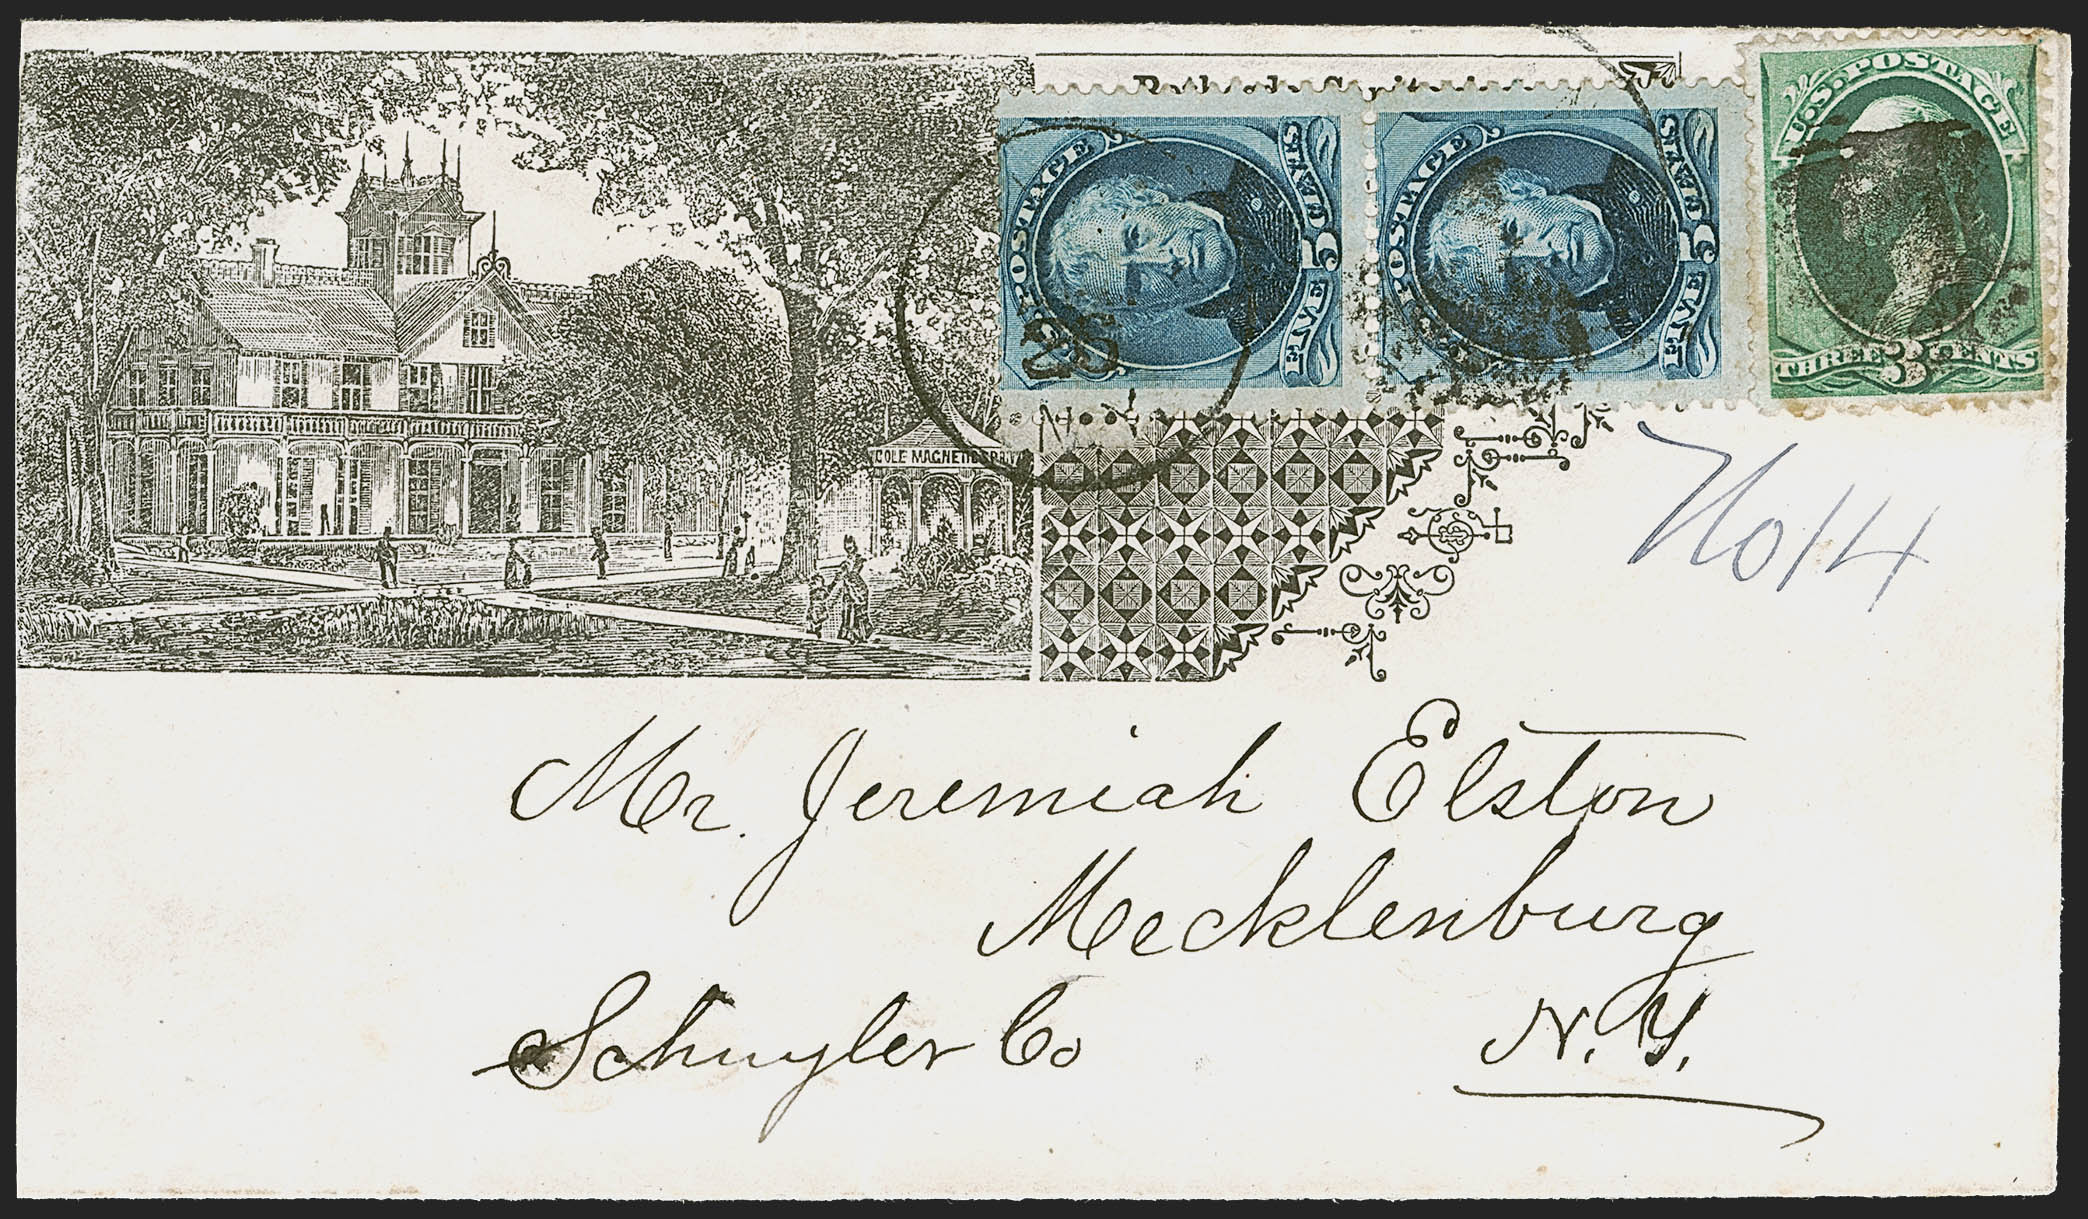 POSTAGE FIVE 5 CENTS
POSTAGE FIVE 5 CENTS
U.S. POSTAGE
THREE 3 CENTS
26
N.Y.
COLE MAGNETIC
No 14
Mr. Jeremiah Elston
Mecklenburg
Schuyler Co
N.Y.